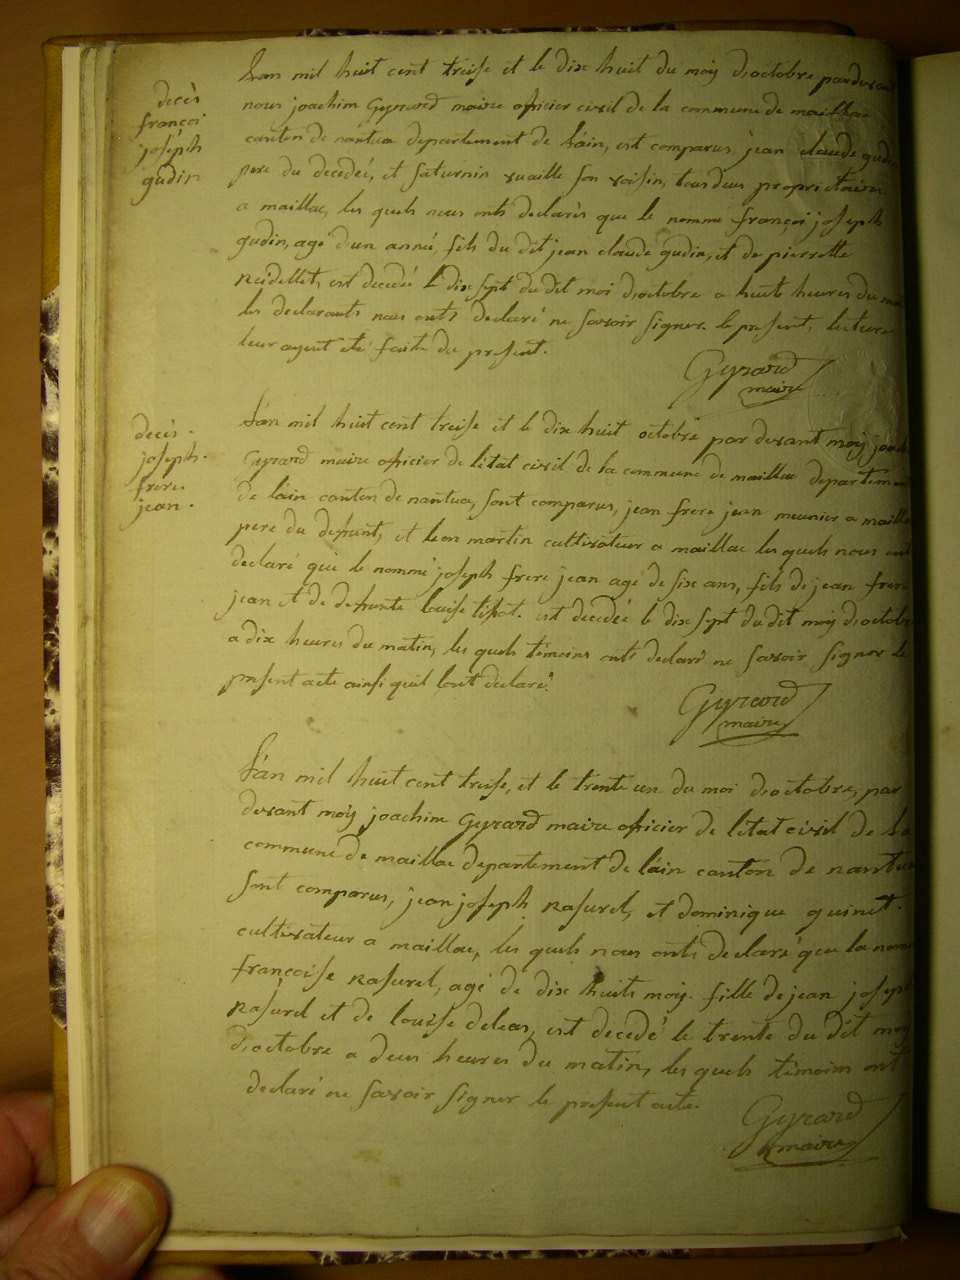 decès
françoi
joséph
gudin
Lan mil huit cent treise et le dix huit du moy d'octobre pardevant
nous joachim Geyrard maire oficier civil de la commune de maillac
canton de nantua departement de lain, est comparus jean claude gudin
pere du decedé, et saturnin vuaille son voisin, tous deux proprietaires
a maillac, les quels nous onts declarés que le nommé françoi joseph
gudin, agé d'un anné, fils du dit jean claude gudin, et de pierrette
Reidellet, est decedé le dix sept du dit moi d'octobre a huits heures du
les declarants nous onts declaré ne savoir signer le present, lecture
leur ayent eté faite du present.
Geyrard
maire
decès.
joseph.
frere.
jean.
L'an mil huit cent treise et le dix huit octobre par devant moy
Geyrard maire oficier de létat civil de la commune de maillac departement
de lain canton de nantua, sont comparus, jean frere jean meunier a maillac
pere du defunt, et leon martin cultivateur a maillac les quels nous ont
declaré que le nommé joseph frere jean agé de six ans, fils de jean frere
jean et de defunte louise tissot. est decedée le dix sept du dit moy d'octobre
a dix heures du matin, les quels témoins onts declaré ne savoir signer le
present acte ainsi quil lont declaré.
Geyrard
maire
L'an mil huit cent treise, et le trente un du moi d'octobre, par
devant moy joachim Geyrard maire oficier de létat civil de la
commune de maillac departement de lain canton de nantua
sont comparus, jean joseph Rasurel, et dominique guinet.
cultivateur a maillac, les quels nous onts declaré que la nommé
françoise Rasurel, agé de dix huits moy. fille de jean joseph
Rasurel et de louise deleas, est decedé le trente du dit moy
d'octobre a deux heures du matin, les quels témoins ont
declaré ne savoir signer le present acte.
Geyrard
maire